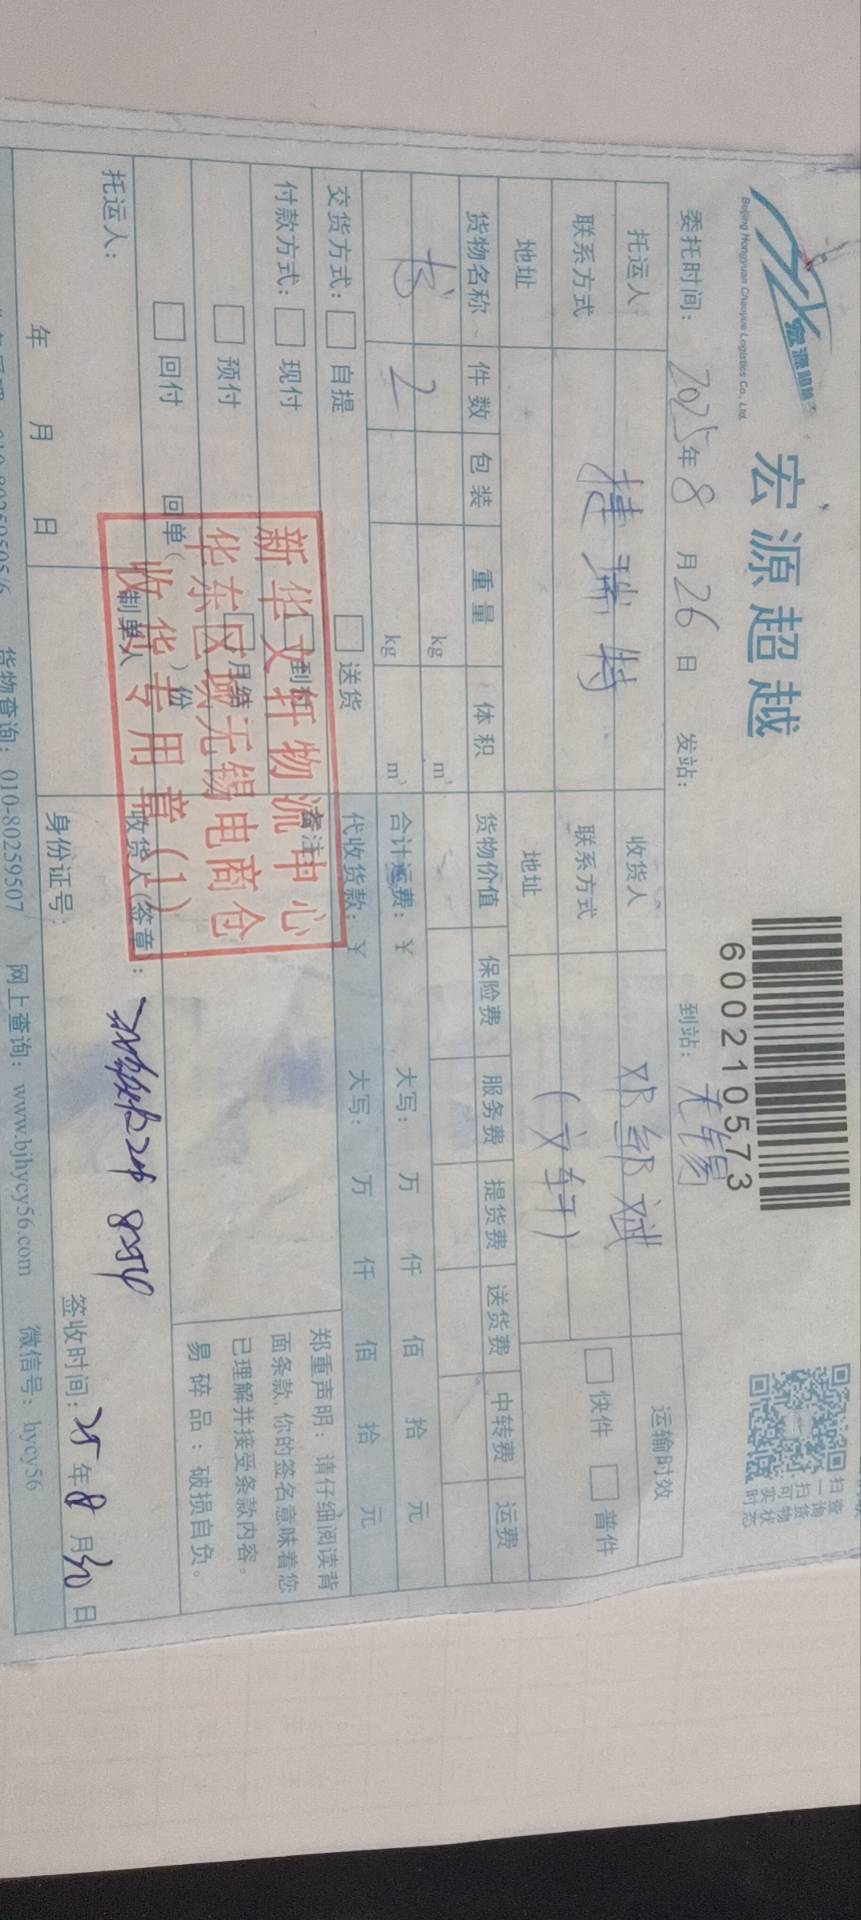 宏源超越
Beijing Hongyuan Chaoyue Logistics Co., Ltd.
宏源超越
600210573
扫一扫 查询货物 可实时状态
委托时间: 2025年8月26日 发站: 到站: 无锡
托运人 捷瑞特 收货人 运输时效
联系方式 联系方式 (文轩) 快件 普件
地址 地址
货物名称 件数 包装 重量 体积 货物价值 保险费 服务费 提货费 送货费 中转费 运费
书 2 kg m³
kg m³ 合计运费: ¥ 大写: 万 仟 佰 拾 元
交货方式: 自提 送货 代收货款: ¥ 大写: 万 仟 佰 拾 元
付款方式: 现付 到付 备注:
预付 月结
回付 回单( )份
郑重声明: 请仔细阅读背
面条款,你的签名意味着您
已理解并接受条款内容。
易碎品: 破损自负。
新华文轩物流中心
华东区域无锡电商仓
收货专用章(1)
托运人: 制单人 收货人(签章):
年 月 日 身份证号: 签收时间: 25年8月30日
货物查询: 010-80259507 网上查询: www.bjhycy56.com 微信号: hycy56